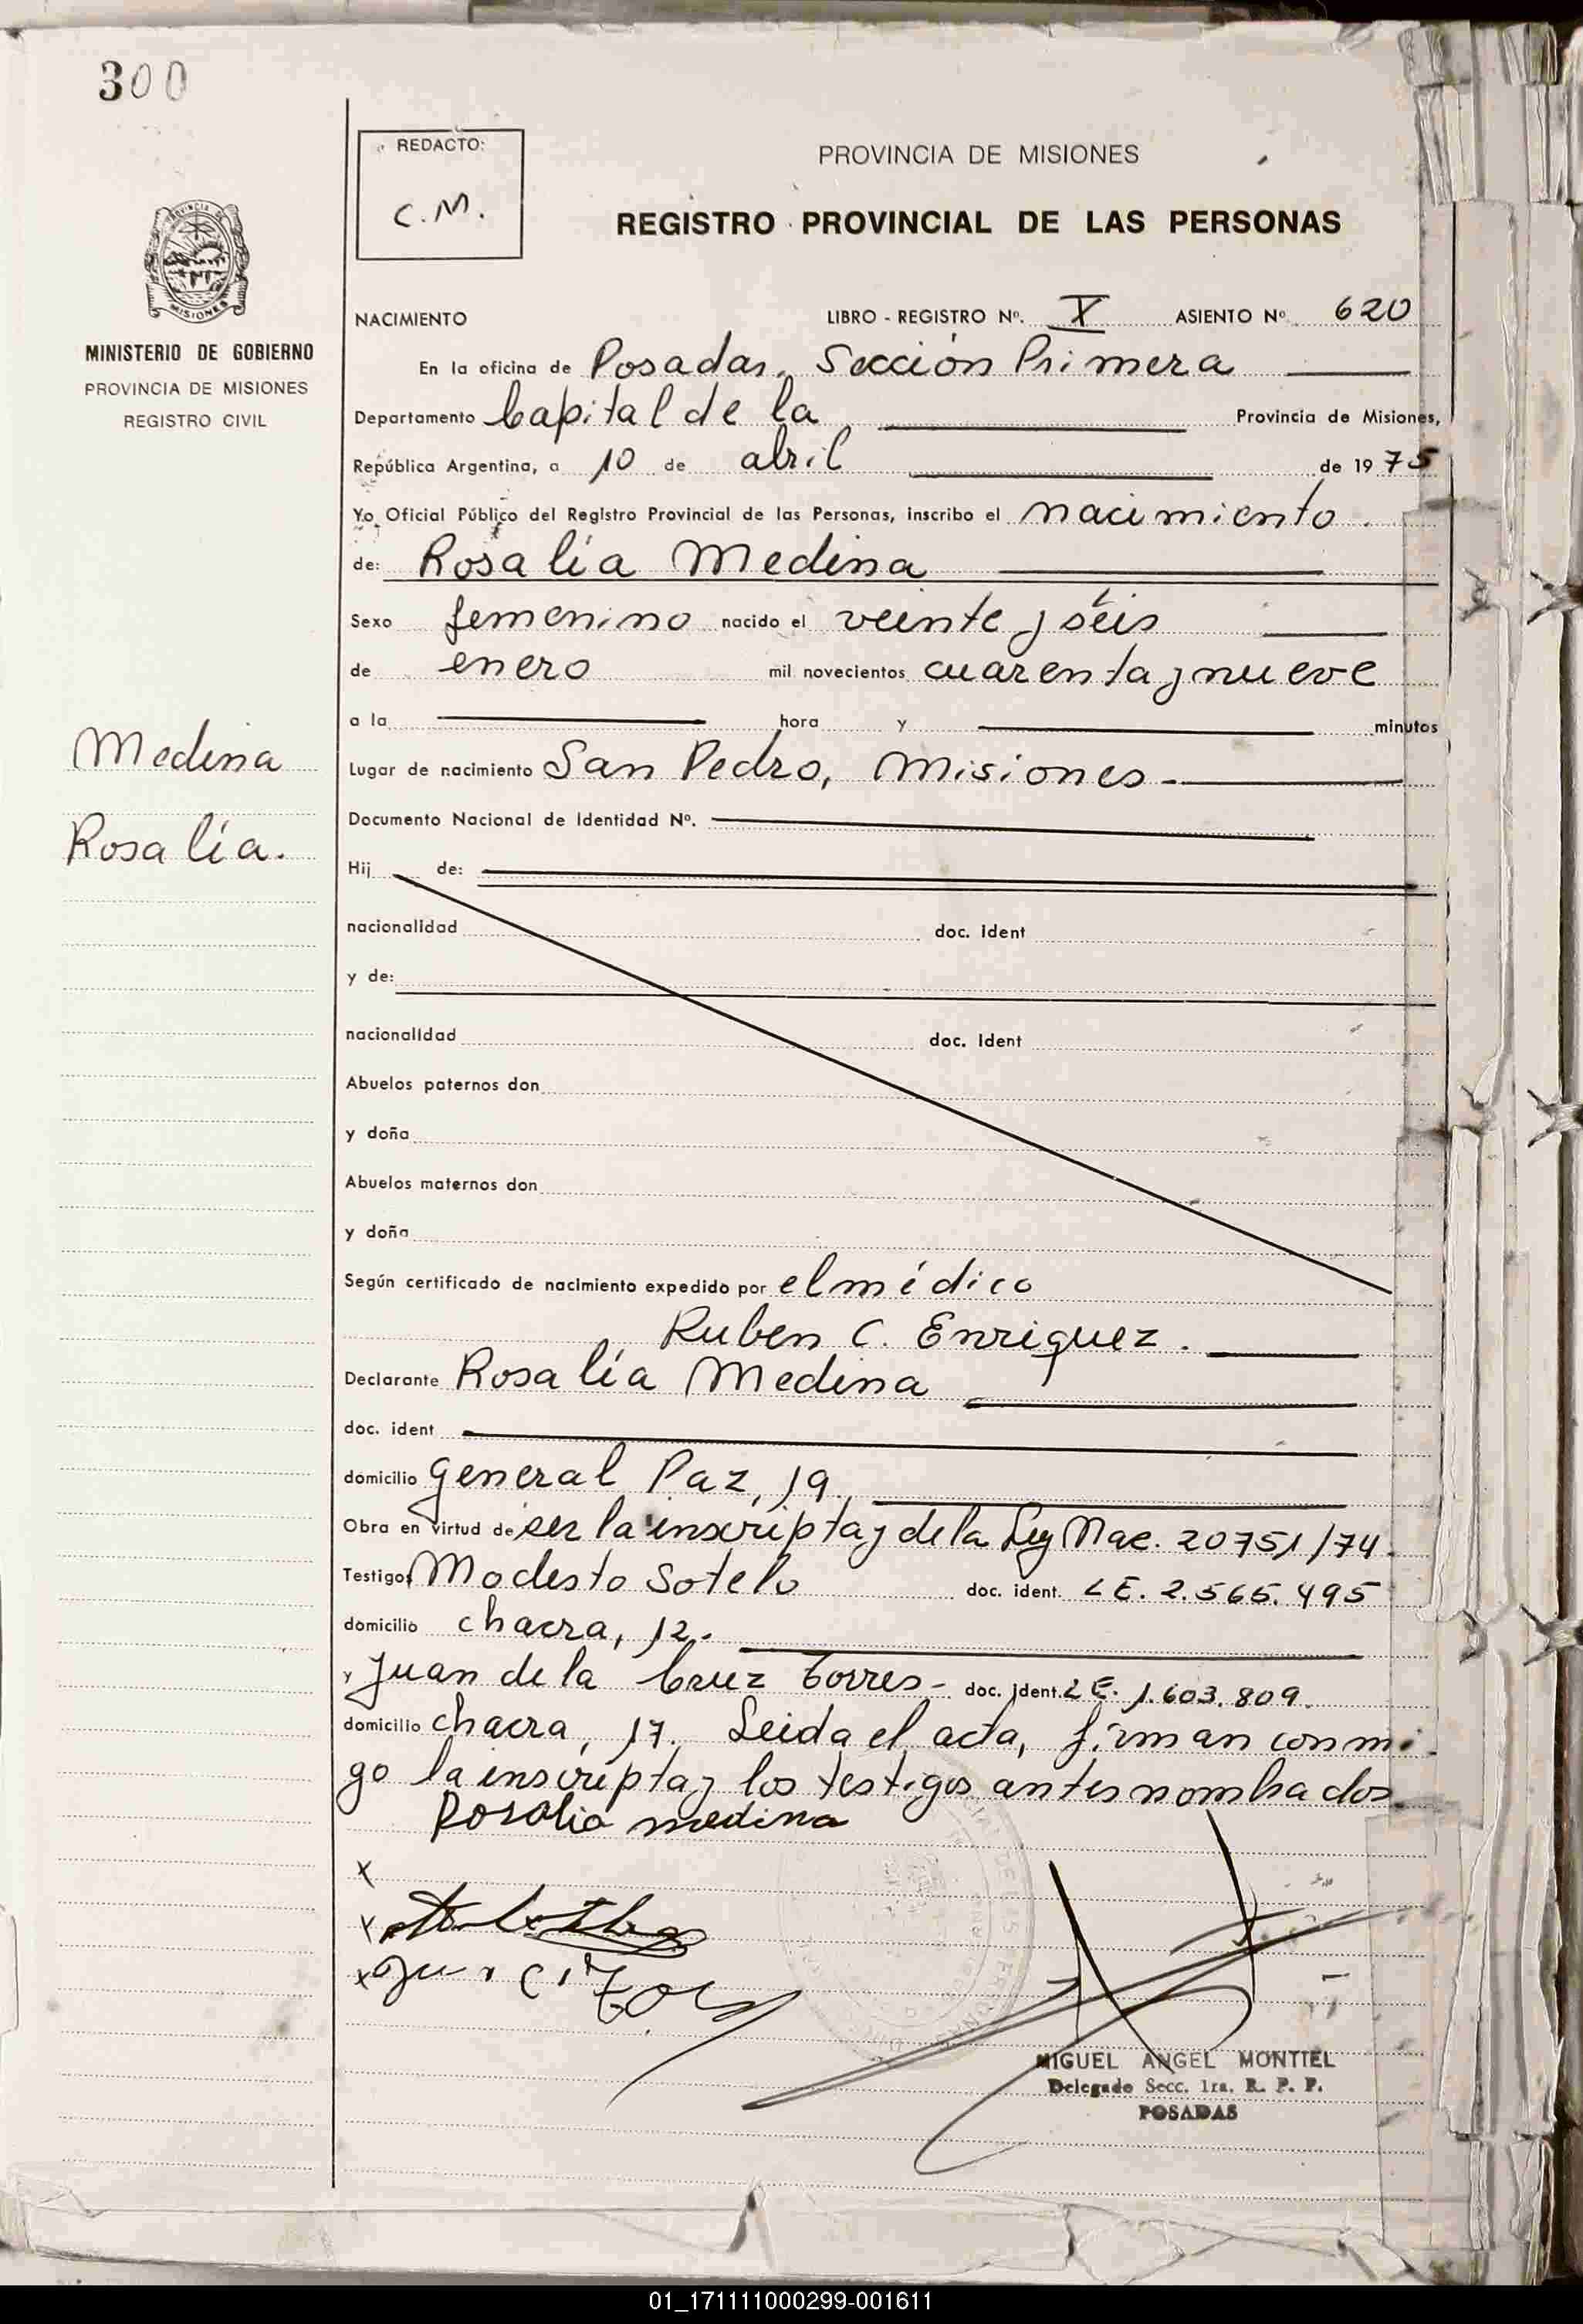 300
REDACTO:
C.M.
PROVINCIA DE MISIONES
REGISTRO PROVINCIAL DE LAS PERSONAS
MISIONES
MINISTERIO DE GOBIERNO
PROVINCIA DE MISIONES
REGISTRO CIVIL
NACIMIENTO LIBRO - REGISTRO Nº. X ASIENTO Nº 620
En la oficina de Posadas, Sección Primera
Departamento Capital de la Provincia de Misiones,
República Argentina, a 10 de abril de 1975
Yo Oficial Público del Registro Provincial de las Personas, inscribo el nacimiento
de: Rosalía Medina
Sexo femenino nacido el veinte y séis
de enero mil novecientos cuarenta y nueve
a la hora y minutos
Medina
Rosalía.
Lugar de nacimiento San Pedro, Misiones-
Documento Nacional de Identidad Nº.
Hij de:
nacionalidad doc. ident
y de:
nacionalidad doc. ident
Abuelos paternos don
y doña
Abuelos maternos don
y doña
Según certificado de nacimiento expedido por el médico
Ruben C. Enriquez.
Declarante Rosalía Medina
doc. ident
domicilio General Paz, 19.
Obra en virtud de ser la inscripta y de la Ley Nac. 20751/74.
Testigos Modesto Sotelo doc. ident. LE. 2.565.495
domicilio chacra, 12.
y Juan de la Cruz Torres- doc. ident. LE. 1.603.809.
domicilio chacra, 17. Leida el acta, firman conmi-
go la inscripta y los testigos antes nombrados
Rosalia medina
x
x
x
MIGUEL ANGEL MONTIEL
Delegado Secc. 1ra. R. P. P.
POSADAS
01_171111000299-001611